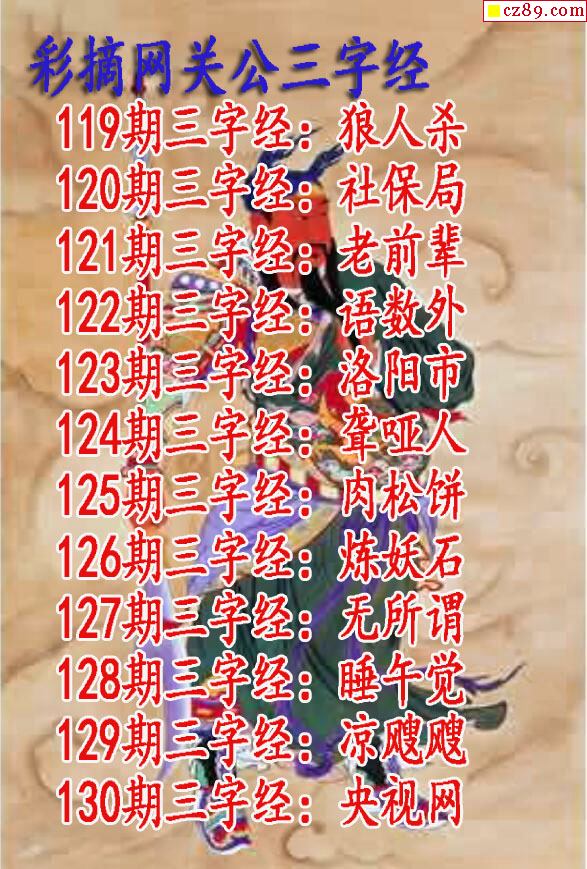 cz89.com
彩摘网关公三字经
119期三字经：狼人杀
120期三字经：社保局
121期三字经：老前辈
122期三字经：语数外
123期三字经：洛阳市
124期三字经：聋哑人
125期三字经：肉松饼
126期三字经：炼妖石
127期三字经：无所谓
128期三字经：睡午觉
129期三字经：凉飕飕
130期三字经：央视网